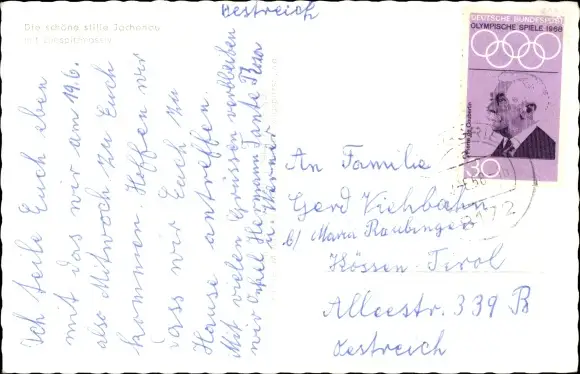 Die schöne stille Jachenau
mit Benediktenwand
Oestreich
DEUTSCHE BUNDESPOST
OLYMPISCHE SPIELE 1968
30
8172
Ich teile Euch eben
mit das wir am 19.6.
also Mitwoch zu Euch
kommen. Hoffen wir
dass wir Euch zu
Hause antreffen.
Mit vielen Grüssen verbleiben
wir Onkel Hermann Tante Resa
u. Werner
An Familie
Gerd Viehbahn
b/ Maria Raubinger
Kössen Tirol
Alleestr. 339 B
Oestreich